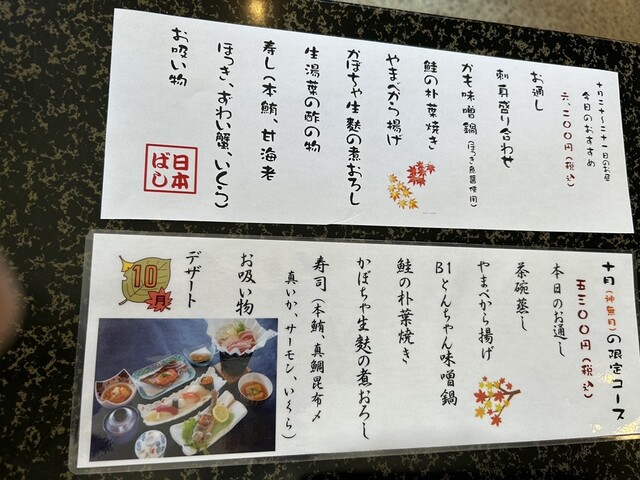 十月二十〜二十一日のお昼
今日のおすすめ
六、二〇〇円（税込）
お通し
刺身盛り合わせ
かも味噌鍋（ほっき魚醤使用）
鮭の朴葉焼き
やまべから揚げ
かぼちゃ生麩の煮おろし
生湯葉の酢の物
寿し（本鮪、甘海老
ほっき、ずわい蟹、いくら
お吸い物
日本ばし
十月（神無月）の限定コース
五三〇〇円（税込）
本日のお通し
茶碗蒸し
やまべから揚げ
B1とんちゃん味噌鍋
鮭の朴葉焼き
かぼちゃ生麩の煮おろし
寿司（本鮪、真鯛昆布〆
真いか、サーモン、いくら）
お吸い物
デザート
10月